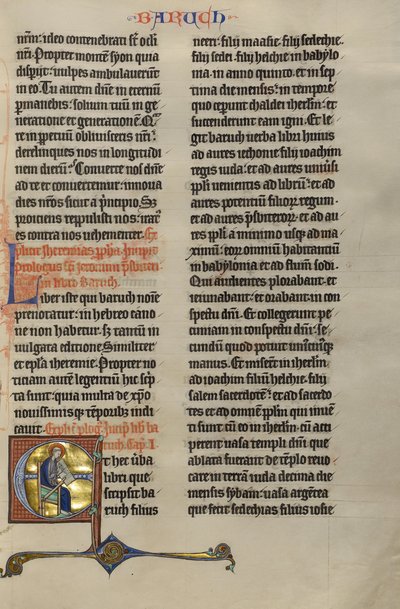 BARUCH
nr̄m: ideo contenebrati sūt oc̄li
nr̄i. Propter montem syon quia
disp̄ijt: vulpes ambulaverunt
in eo. Tu autem dn̄e in eternū
permanebis: solium tuū in ge
neratione et generationem. Q̄re
in ꝑpetuū oblivisceris nr̄i:
derelinques nos in longitudi
nem dierū: Converte nos dn̄e
ad te et convertemur: innova
dies nr̄os sicut a pͥncipio. Sꝫ
proiciens reppulisti nos: irat9
es contra nos vehementer. Ex
plicit Iheremias ꝓpha. Incipit
prologus sc̄i Jeronimi p̄sbiteri
in libro Baruch.
Liber iste qui baruch noīe
prenotatur: in hebreo cano
ne non habetur. Sꝫ tantū in
vulgata editione. Similiter
et epl̄a iheremie. Propter no
ticiam autē legentiū hic sc̄p
ta sunt: quia multa de xp̄o
novissimisqꝫ temꝑibꝫ indi
cant. Expl̄i ꝓlog9. Incip̄ lib̄ ba
ruch. Cap̄. I.
Et hec ūba
libri que
scripsit ba
ruch filius
neeri. filij maasie. filij sedechie.
filij sedei. filij helchie in babylo
nia. in anno quinto. et in sep
tima die mensis. in tempore
quo ceperunt chaldei ihrl̄m: et
succenderunt eam igni. Et le
git baruch verba libri huius
ad aures iechonie filij ioachim
regis iuda: et ad aures univ̄si
ppl̄i venientis ad librū: et ad
aures potentiū filioꝝ regum.
et ad aures p̄sbiteroꝝ: et ad au
res ppl̄i a minimo usqꝫ ad ma
ximū: eoꝝ omniū habitantiū
in babylonia et ad flumē sodi.
Qui audientes plorabant: et
ieiunabant: et orabant in con
spectu dn̄i. Et collegerunt pe
cuniam in conspectu dn̄i: se
cundū quod potuit uniuscuiqꝫ
manus. Et miserūt in ihrl̄m
ad ioachim filiū helchie. filij
salem sacerdotē: et ad sacerdo
tes et ad omnē ppl̄m qui inuē
ti sunt cū eo in ihrl̄m: cū acci
perent vasa templi dn̄i que
ablata fuerant de tēplo revo
care in terrā iuda decima die
mensis syban. vasa argētea
que fecit sedechias filius iosie